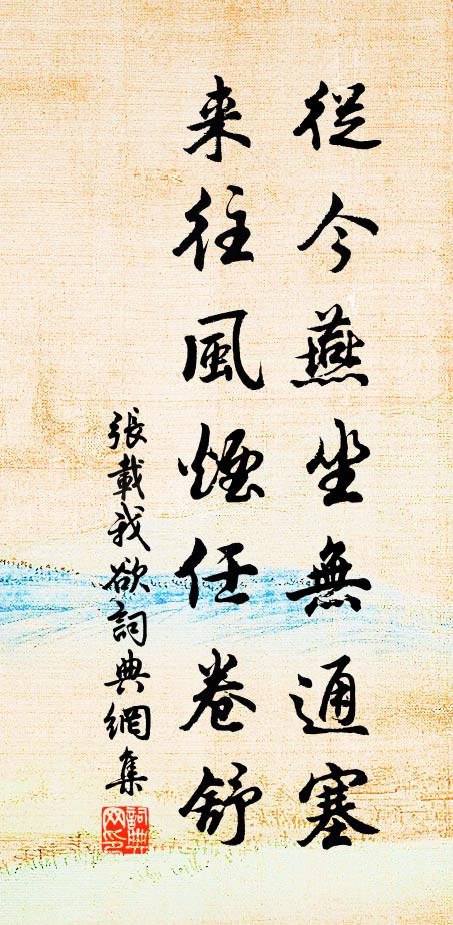 從今燕坐無通塞
来往風煙任卷舒
張載我欲詞典網集
詞典網印